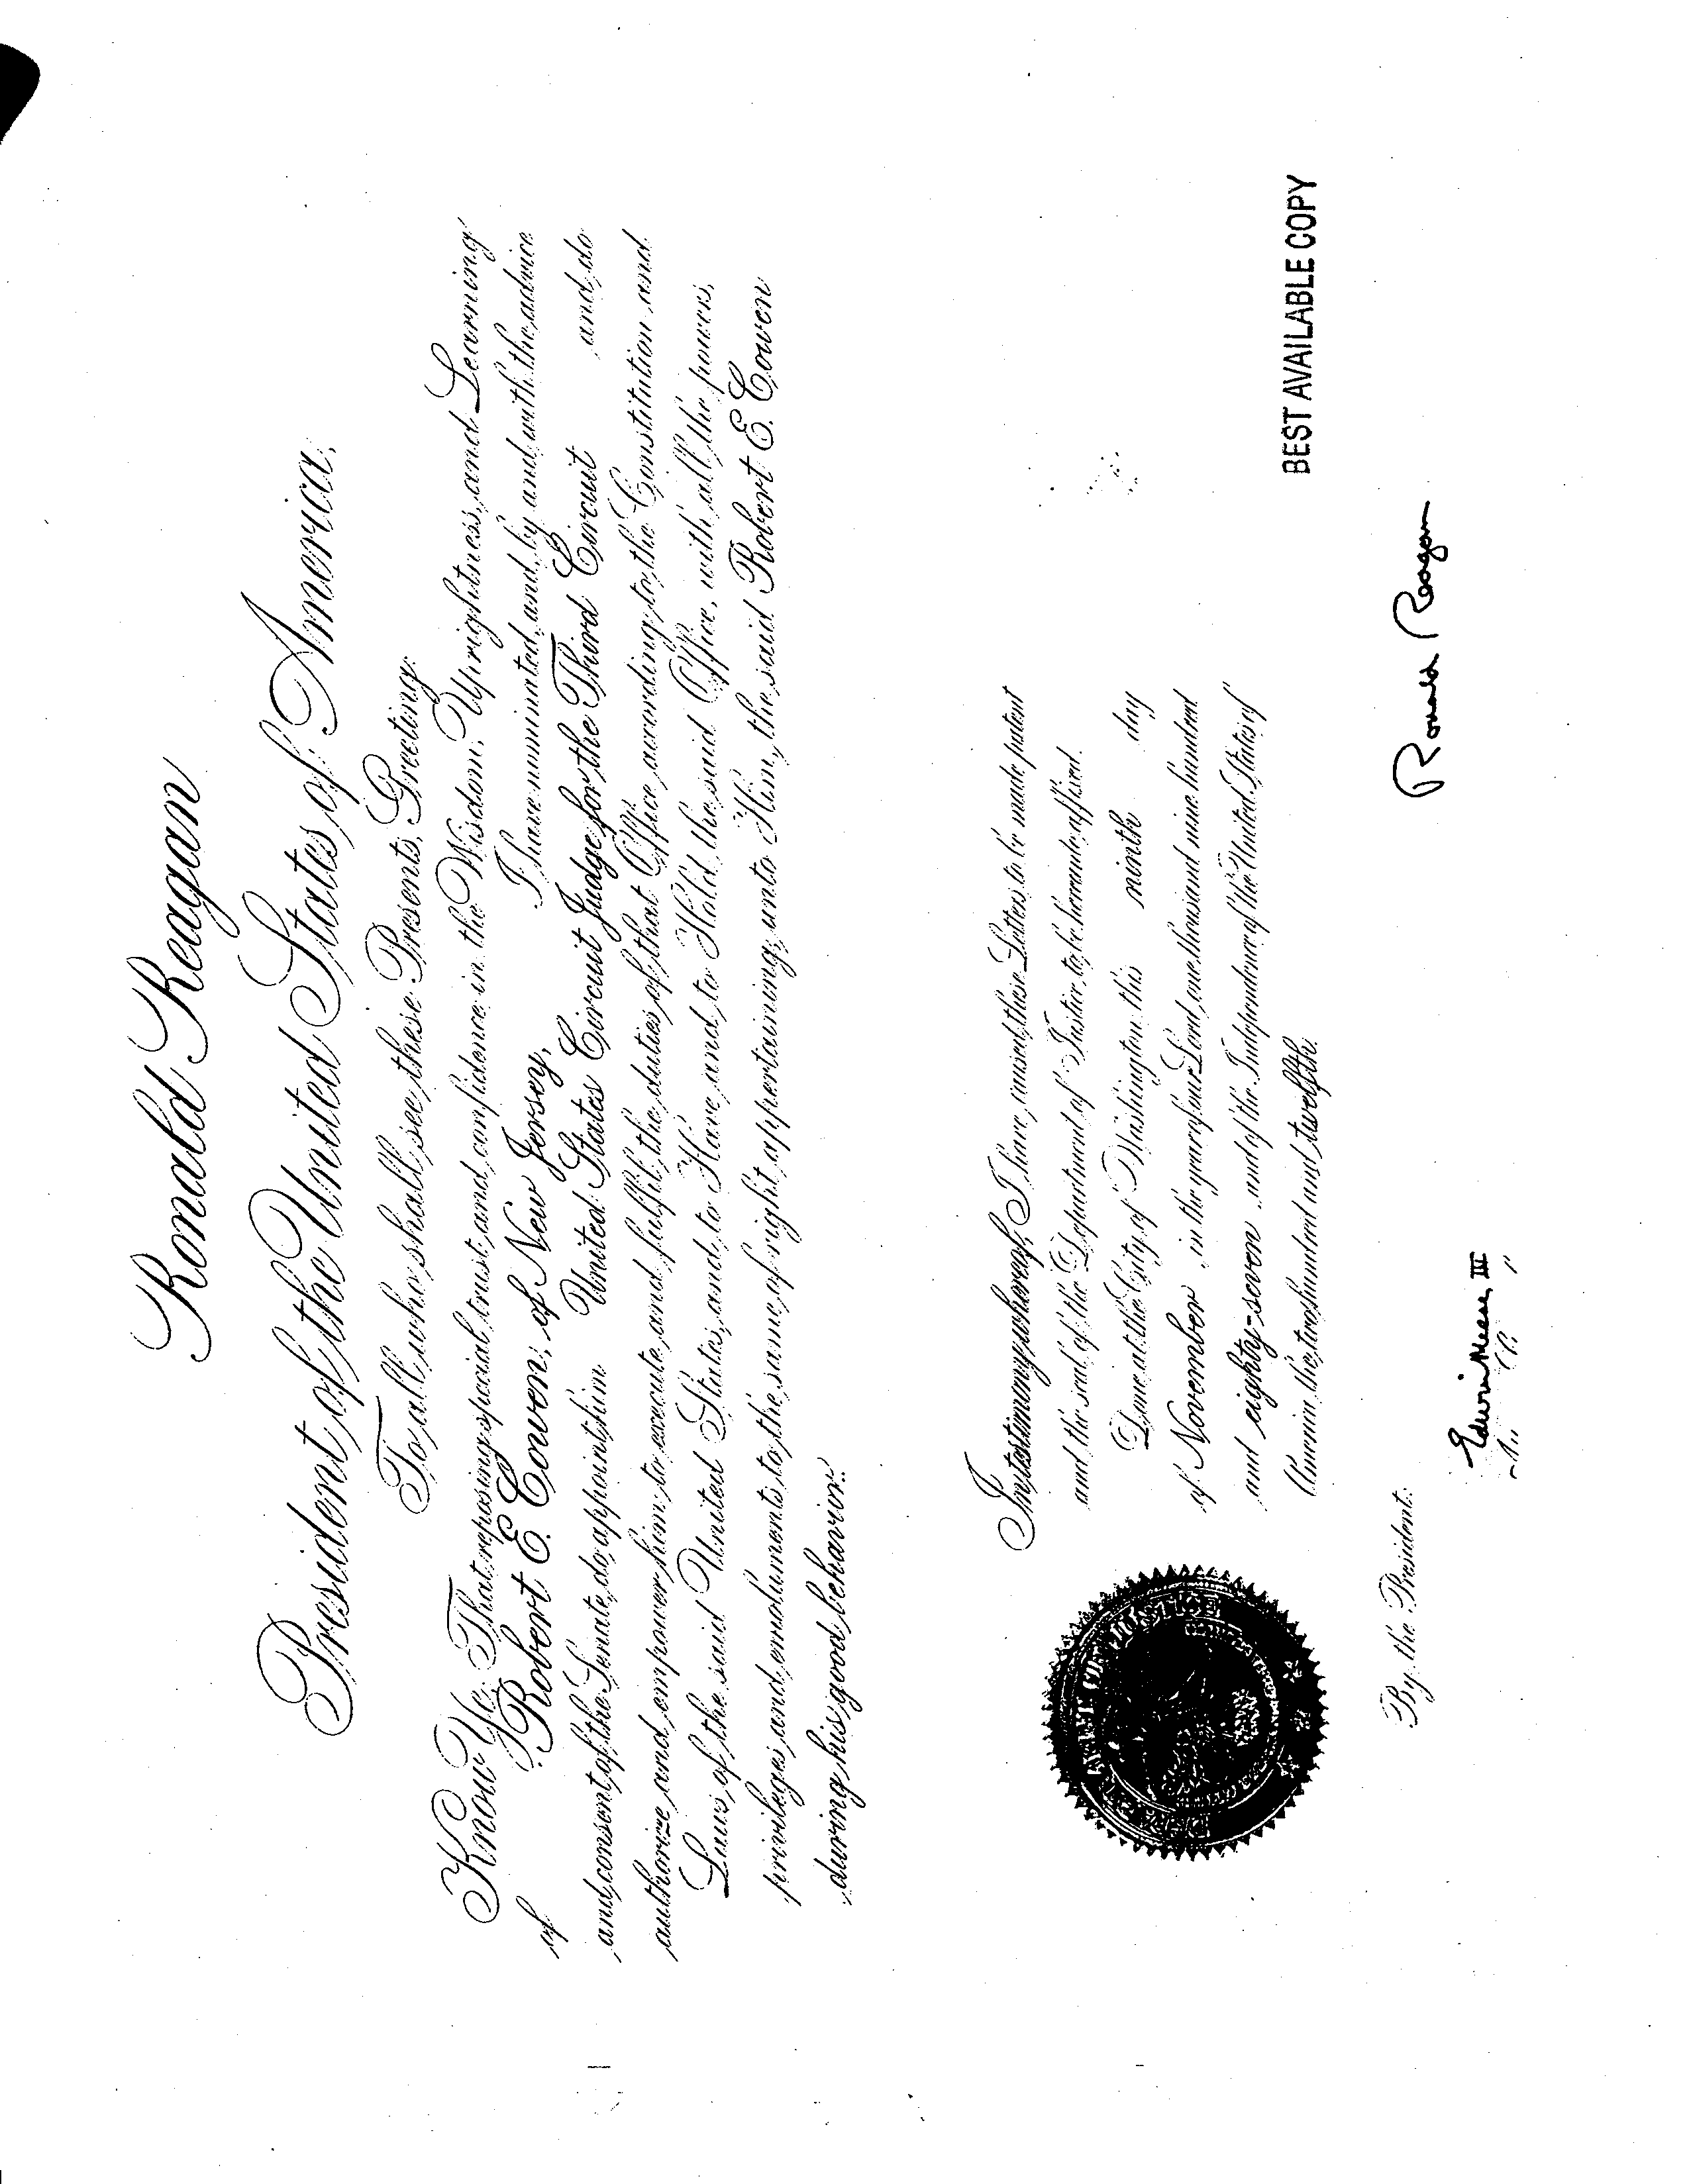 Ronald Reagan
President of the United States of America,
To all who shall see these Presents, Greeting:
Know Ye: That reposing special trust and confidence in the Wisdom, Uprightness, and Learning
of Robert E. Cowen, of New Jersey, I have nominated, and, by and with the advice
and consent of the Senate, do appoint him United States Circuit Judge for the Third Circuit and do
authorize and empower him to execute and fulfil the duties of that Office according to the Constitution and
Laws of the said United States, and to Have and to Hold the said Office, with all the powers,
privileges and emoluments to the same of right appertaining, unto Him, the said Robert E. Cowen
during his good behavior.
In testimony whereof, I have caused these Letters to be made patent
and the seal of the Department of Justice to be hereunto affixed.
Done at the City of Washington this ninth day
of November, in the year of our Lord one thousand nine hundred
and eighty-seven and of the Independence of the United States of
America the two hundred and twelfth.
BEST AVAILABLE COPY
Ronald Reagan
By the President:
Edwin Meese III
DEPARTMENT OF JUSTICE